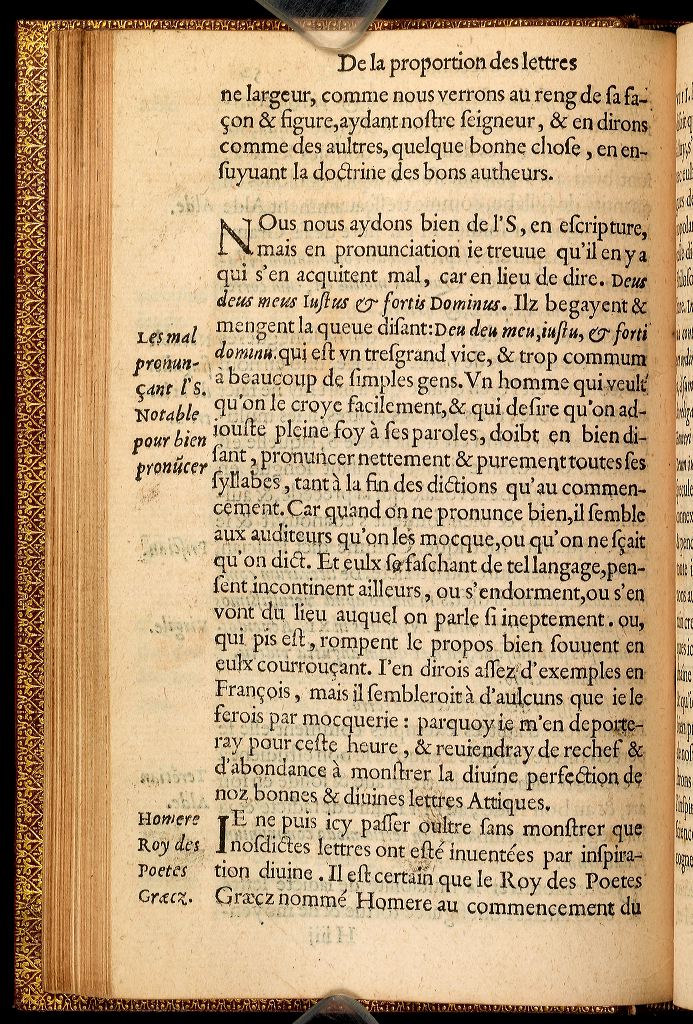 De la proportion des lettres
ne largeur, comme nous verrons au reng de ſa fa-
çon & figure, aydant noſtre ſeigneur, & en dirons
comme des aultres, quelque bonne choſe, en en-
ſuyuant la doctrine des bons autheurs.
NOus nous aydons bien de l'S, en eſcripture,
mais en pronunciation ie treuue qu'il en y a
qui s'en acquitent mal, car en lieu de dire. Deus
deus meus Iuſtus & fortis Dominus. Ilz begayent &
mengent la queue diſant: Deu deu meu, iuſtu, & forti
dominu. qui eſt vn treſgrand vice, & trop commum
à beaucoup de ſimples gens. Vn homme qui veult
qu'on le croye facilement, & qui deſire qu'on ad-
iouſte pleine foy à ſes paroles, doibt en bien di-
ſant, pronuncer nettement & purement toutes ſes
ſyllabes, tant à la fin des dictions qu'au commen-
cement. Car quand on ne pronunce bien, il ſemble
aux auditeurs qu'on les mocque, ou qu'on ne ſçait
qu'on dict. Et eulx ſe faſchant de tel langage, pen-
ſent incontinent ailleurs, ou s'endorment, ou s'en
vont du lieu auquel on parle ſi ineptement. ou,
qui pis eſt, rompent le propos bien ſouuent en
eulx courrouçant. I'en dirois aſſez d'exemples en
François, mais il ſembleroit à d'aulcuns que ie le
ferois par mocquerie: parquoy ie m'en deporte-
ray pour ceſte heure, & reuiendray de rechef &
d'abondance à monſtrer la diuine perfection de
noz bonnes & diuines lettres Attiques.
IE ne puis icy paſſer oultre ſans monſtrer que
noſdictes lettres ont eſté inuentées par inſpira-
tion diuine. Il eſt certain que le Roy des Poetes
Græcz nommé Homere au commencement du
Les mal
pronun-
çant l'S.
Notable
pour bien
pronũcer
Homere
Roy des
Poetes
Græcz.